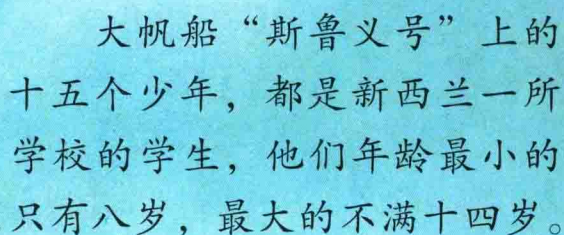 大帆船“斯鲁义号”上的
十五个少年，都是新西兰一所
学校的学生，他们年龄最小的
只有八岁，最大的不满十四岁。